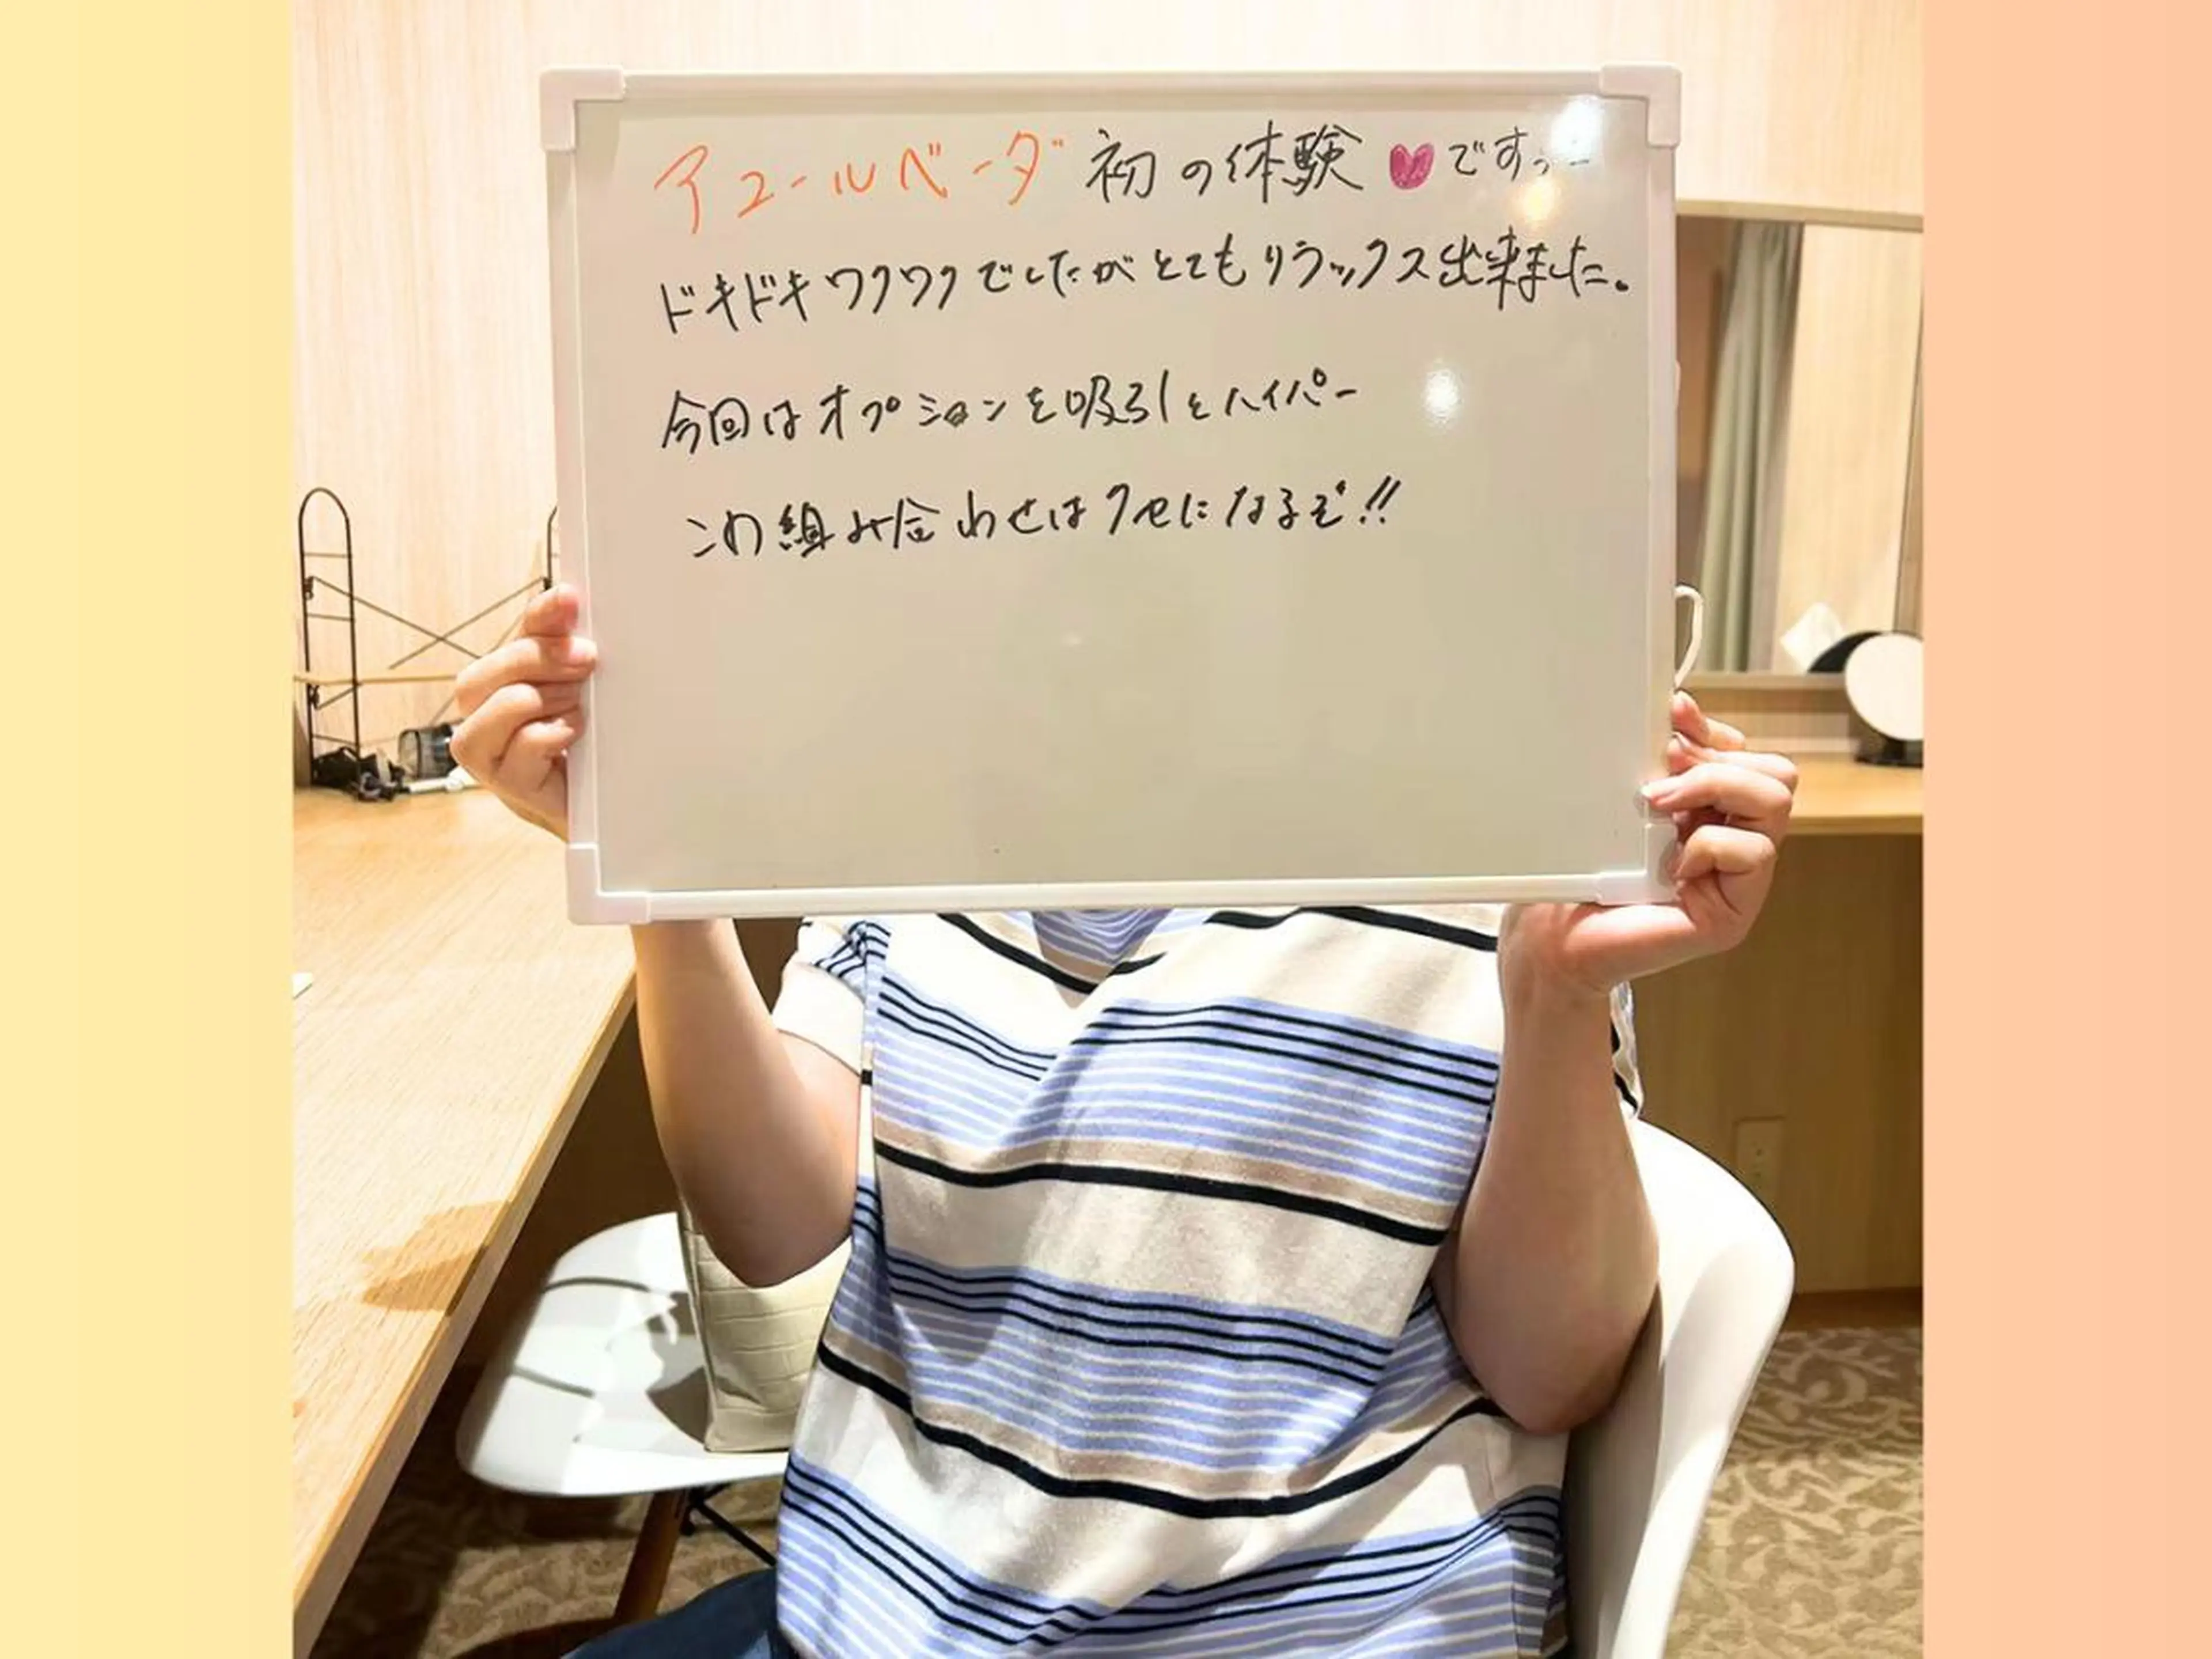 アユールベーダ 初の体験♥ですっ
ドキドキワクワクでしたがとてもリラックス出来ました。
今回はオプションを吸引とハイパー
この組み合わせはクセになるぞ!!